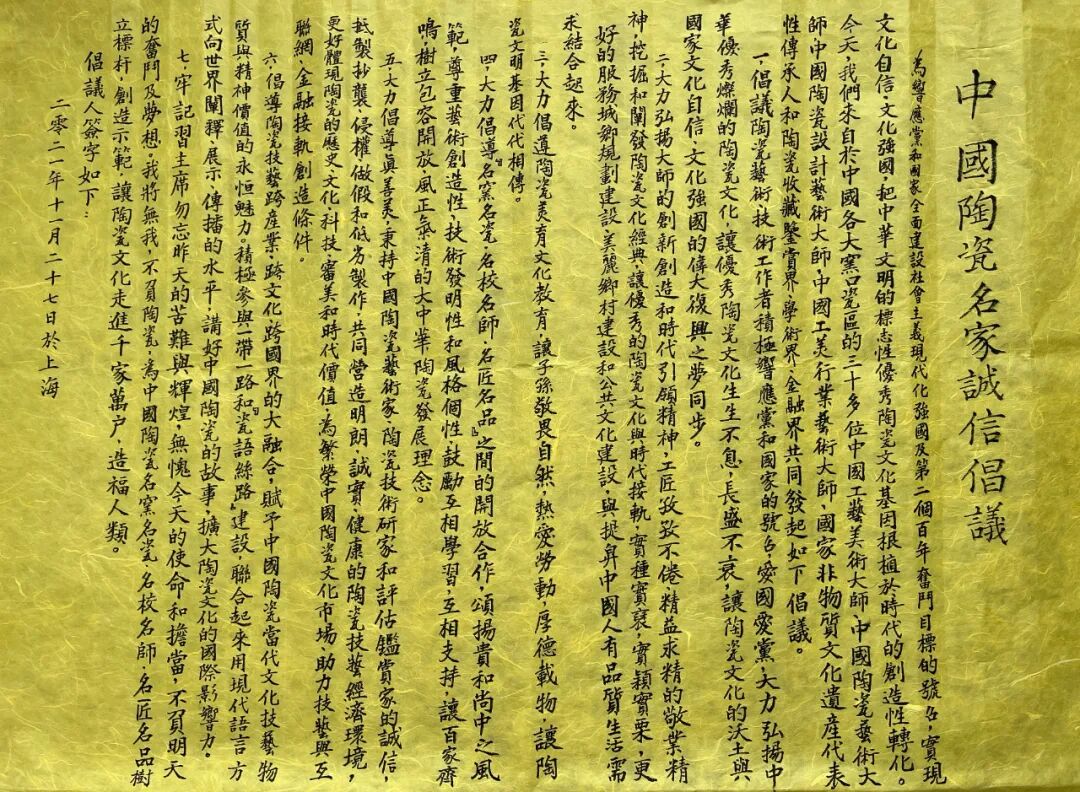 中國陶瓷名家誠信倡議
為響應黨和國家全面建設社會主義現代化強國及第二個百年奮鬥目標的號召，實現
文化自信、文化強國，把中華文明的標志性優秀陶瓷文化基因根植於時代的創造性轉化。
今天，我們來自於中國各大窯口瓷區的三十多位中國工藝美術大師、中國陶瓷藝術大
師、中國陶瓷設計藝術大師、中國工美行業藝術大師、國家非物質文化遺産代表
性傳承人和陶瓷收藏鑒賞界、學術界、金融界共同發起如下倡議。
一，倡議陶瓷藝術技術工作者積極響應黨和國家的號召，愛國愛黨，大力弘揚中
華優秀燦爛的陶瓷文化，讓優秀陶瓷文化生生不息，長盛不衰，讓陶瓷文化的沃土與
國家文化自信、文化強國的偉大復興之夢同步。
二，大力弘揚大師的創新創造和時代引領精神，工匠孜孜不倦、精益求精的敬業精
神，挖掘和闡發陶瓷文化經典，讓優秀的陶瓷文化與時代接軌，實種實褎，實穎實栗，更
好的服務城鄉規劃建設，美麗鄉村建設和公共文化建設，與提昇中國人有品質生活需
求結合起來。
三，大力倡導陶瓷美育文化教育，讓子孫敬畏自然，熱愛勞動，厚德載物，讓陶
瓷文明基因代代相傳。
四，大力倡導『名窯名瓷、名校名師、名匠名品』之間的開放合作，頌揚貴和尚中之風
範，尊重藝術創造性，技術發明性和風格個性，鼓勵互相學習，互相支持，讓百家齊
鳴，樹立包容開放、風正氣清的大中華陶瓷發展理念。
五，大力倡導真善美，秉持中國陶瓷藝術家、陶瓷技術研家和評估鑑賞家的誠信，
抵製抄襲、侵權做假和低劣製作，共同營造明朗、誠實、健康的陶瓷技藝經濟環境，
更好體現陶瓷的歷史、文化、科技、審美和時代價值，為繁榮中國陶瓷文化市場、助力技藝與互
聯網、金融接軌創造條件。
六，倡導陶瓷技藝跨産業、跨文化、跨國界的大融合，賦予中國陶瓷當代文化技藝物
質與精神價值的永恒魅力。積極參與一帶一路和『瓷語絲路』建設，聯合起來用現代語言方
式向世界闡釋、展示、傳播的水平，講好中國陶瓷的故事，擴大陶瓷文化的國際影響力。
七，牢記習主席勿忘昨天的苦難與輝煌，無愧今天的使命和擔當，不負明天
的奮鬥及夢想。我將無我，不負陶瓷，為中國陶瓷名窯名瓷、名校名師、名匠名品樹
立標杆，創造示範，讓陶瓷文化走進千家萬户，造福人類。
倡議人簽字如下：
二零二一年十一月二十七日於上海